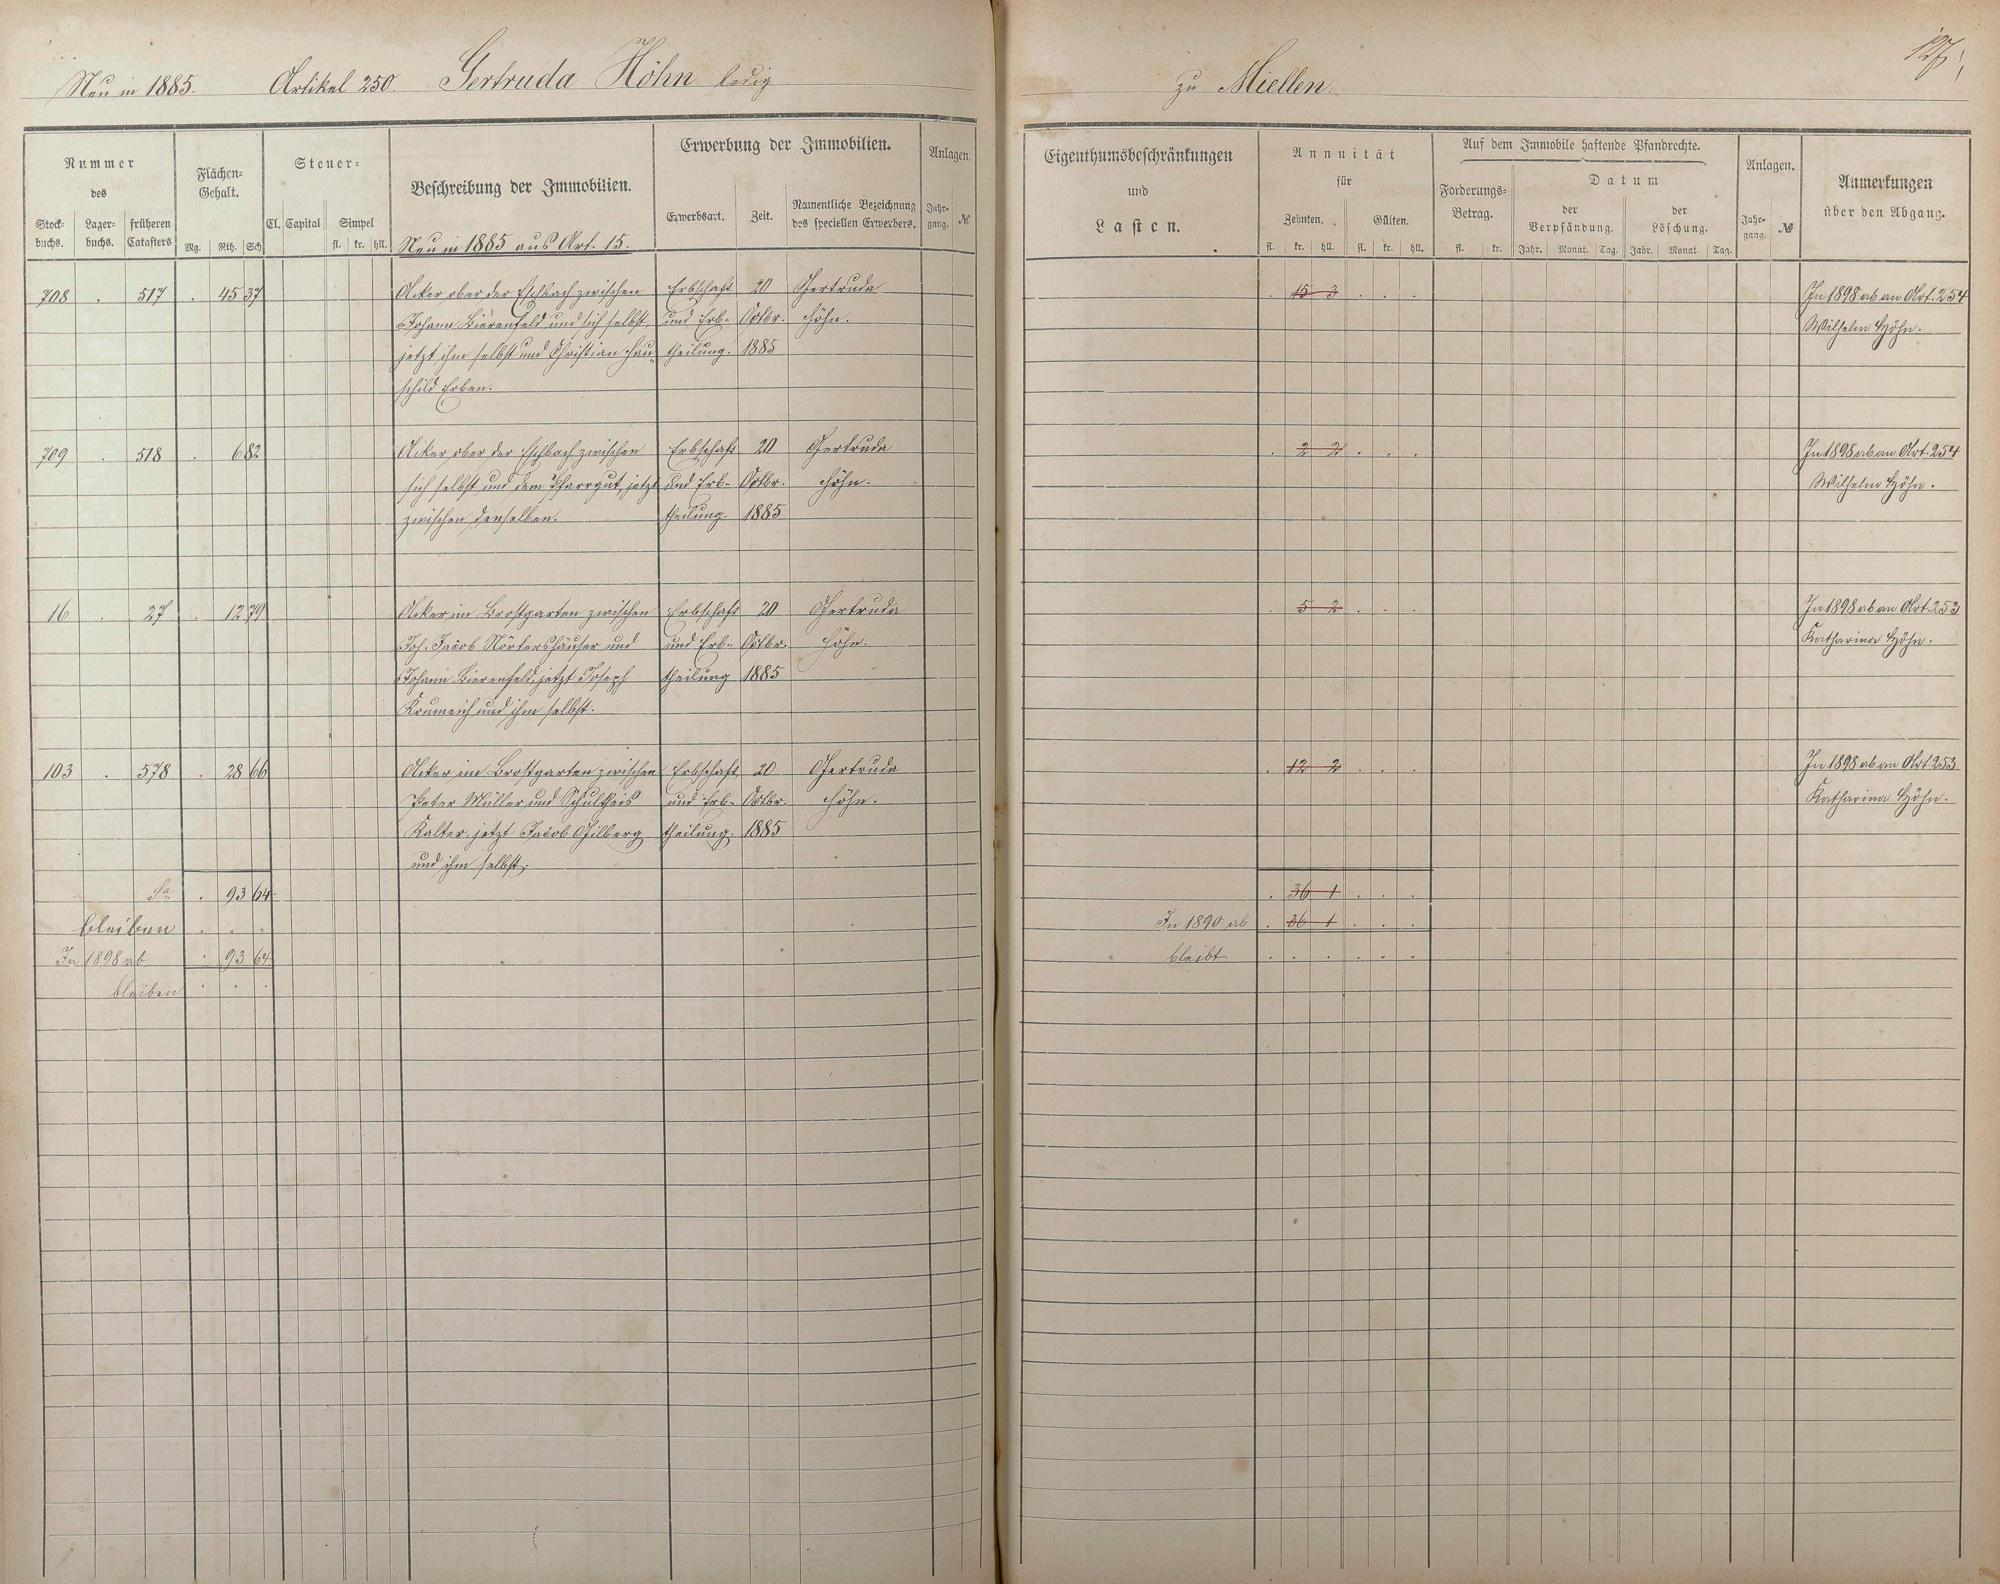 Neu in 1885. Artikel 250. Gertruda Höhn ledig
zu Miellen.
127
Nummer
des
Stock-
buchs.
Lager-
buchs.
früheren
Catasters
Flächen-
Gehalt.
Mg. Rth. Sch
Steuer-
Cl. Capital Simpel
fl. kr. hll.
Beschreibung der Immobilien.
Neu in 1885 aus Art. 15.
Erwerbung der Immobilien.
Erwerbsart. Zeit.
Namentliche Bezeichnung
des speciellen Erwerbers.
Anlagen.
Jahr-
gang. №
Eigenthumsbeschränkungen
und
Lasten.
Annuität
für
Zehnten. Gülten.
fl. kr. hll. fl. kr. hll.
Auf dem Immobile haftende Pfandrechte.
Forderungs-
Betrag.
fl. kr.
Datum
der
Verpfändung.
Jahr. Monat. Tag.
der
Löschung.
Jahr. Monat. Tag.
Anlagen.
Jahr-
gang. №
Anmerkungen
über den Abgang.
708 . 517 . 45 37 Acker ober der Eschbach zwischen Erbschaft 20 Gertruda
Johann Bierenfeld und sich selbst, und Erb- Octbr. Höhn.
jetzt ihm selbst und Christian Hau- theilung. 1885
schild Erben.
. 15 3 . . . In 1898 ab an Art. 254
Wilhelm Höhn.
709 . 518 . 6 82 Acker, ober der Eschbach zwischen Erbschaft 20 Gertruda
sich selbst und dem Pfarrgut, jetzt und Erb- Octbr. Höhn.
zwischen denselben. theilung. 1885
. 2 2 . . . In 1898 ab an Art. 254
Wilhelm Höhn.
16 . 27 . 12 79 Acker im Brostgarten zwischen Erbschaft 20 Gertruda
Joh. Jacob Nörtershäuser und und Erb- Octbr. Höhn.
Johann Bierenfeld, jetzt Joseph theilung 1885
Krumeich und ihm selbst.
. 5 2 . . . In 1898 ab an Art. 253
Katharina Höhn.
103 . 578 . 28 66 Acker im Brostgarten zwischen Erbschaft 20 Gertruda
Peter Müller und Schultheis und Erb- Octbr. Höhn.
Kalter, jetzt Jacob Gilberg theilung. 1885
und ihm selbst.
. 12 2 . . . In 1898 ab an Art. 253
Katharina Höhn.
Sa . 93 64
. 36 1 . . .
bleiben . . .
In 1890 ab . 36 1 . . .
In 1898 ab . 93 64
bleibt . . . . . .
bleiben . . .